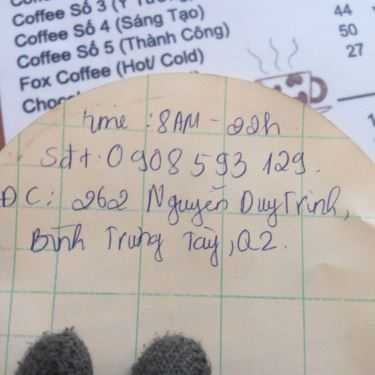 Coffee Số 3 (Ý Tưởng
Coffee Số 4 (Sáng Tạo) 44
Coffee Số 5 (Thành Công) 50
Fox Coffee (Hot/ Cold) 27
time : 8AM - 22h
Sđt: 0908 593 129.
ĐC: 262 Nguyễn Duy Trinh,
Bình Trưng Tây, Q2.